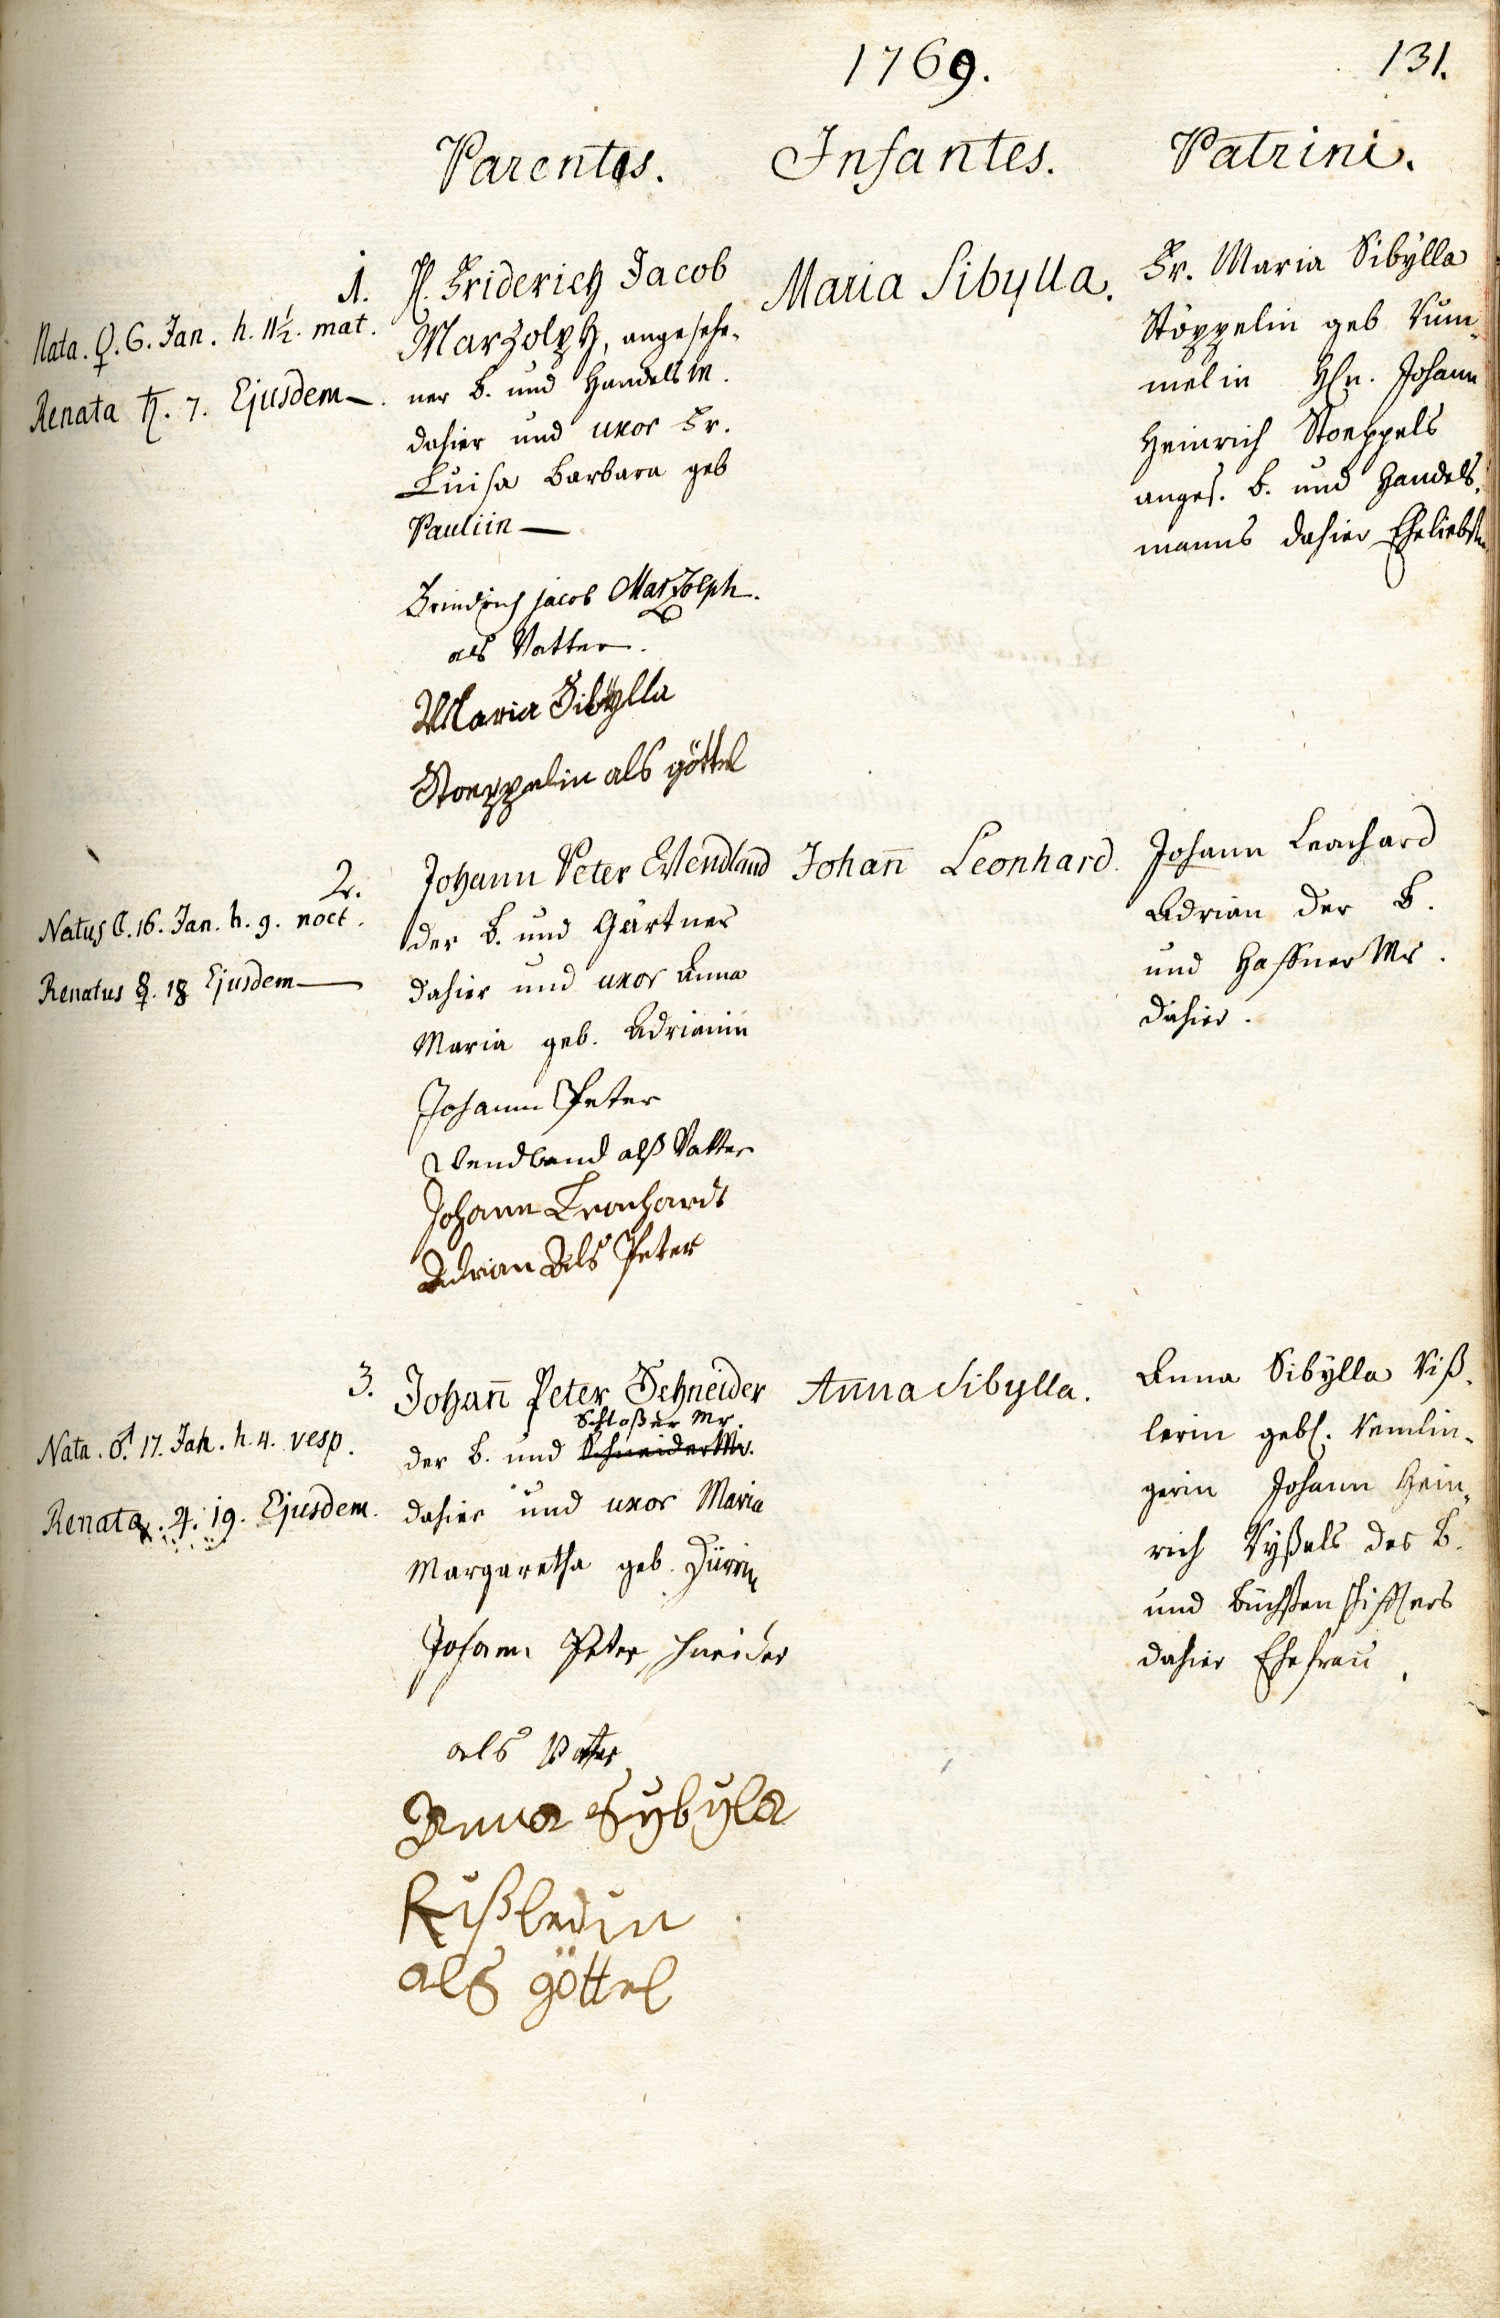 1769.
131.
Parentes.
Infantes.
Patrini.
1.
Nata. ♀. 6. Jan. h. 11½. mat.
Renata ♄. 7. Ejusdem
H. Friderich Jacob
Marzolph, angesehe-
ner B. und Handelsm.
dahier und uxor Fr.
Luisa Barbara geb
Pauliin
Maria Sibylla.
Fr. Maria Sibÿlla
Stöppelin geb Rum-
melin Hln. Johann
Heinrich Stoeppels
anges. B. und Handels-
manns dahier Eheliebste
Friedrich Jacob Marzolph.
als Vatter.
Maria Sibÿlla
Stoeppelin als göttel
2.
Natus 16. Jan. h. 9. noct.
Renatus 18 Ejusdem
Johann Peter Wendland
der B. und Gärtner
dahier und uxor Anna
Maria geb. Adrianin
Johan̄ Leonhard.
Johann Leonhard
Adrian der B.
und Haffner Mr.
dahier.
Johann Peter
Wendland alß Vatter
Johann Leonhardt
Adrian Als Peter
3.
Nata. ♂. 17. Jan. h. 4. vesp.
Renata. ♃. 19. Ejusdem.
Johan̄ Peter Schneider
Schloßer Mr.
der B. und Schneider Mr.
dahier und uxor Maria
Margaretha geb. Dürrin
Johann Peter Schneider
als Vatter
Anna Sibylla.
Anna Sibÿlla Riß-
lerin gebl. Remlin-
gerin Johann Hein-
rich Rÿßels des B.
und Büchsenschifters
dahier Ehefrau.
Anna Sybyla
Rißlerin
als göttel